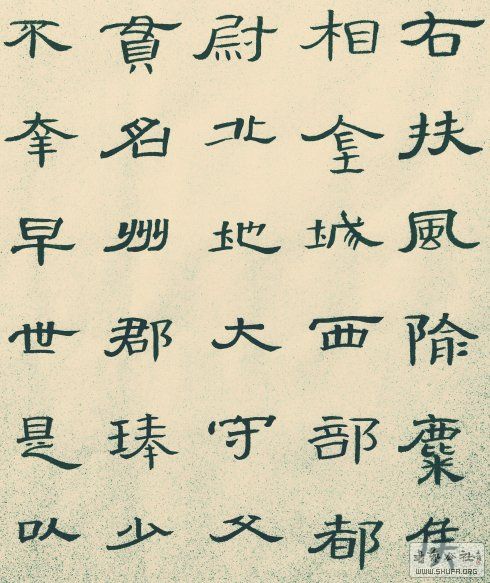 右扶風隃麋侯
相金城西部都
尉北地大守父
貫名州郡琫少
不幸早世是以
WWW.SHUFA.ORG